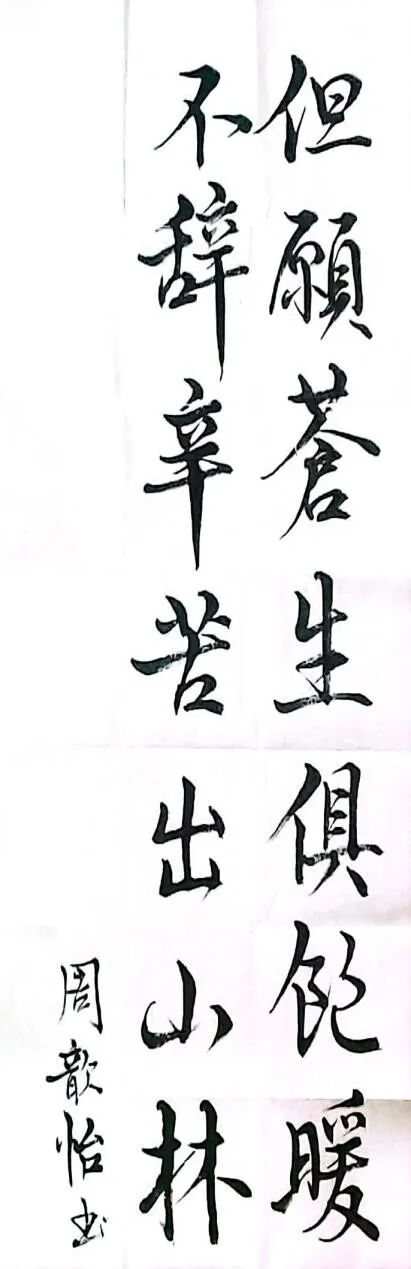 但願蒼生俱飽暖
不辞辛苦出山林
周歆怡书